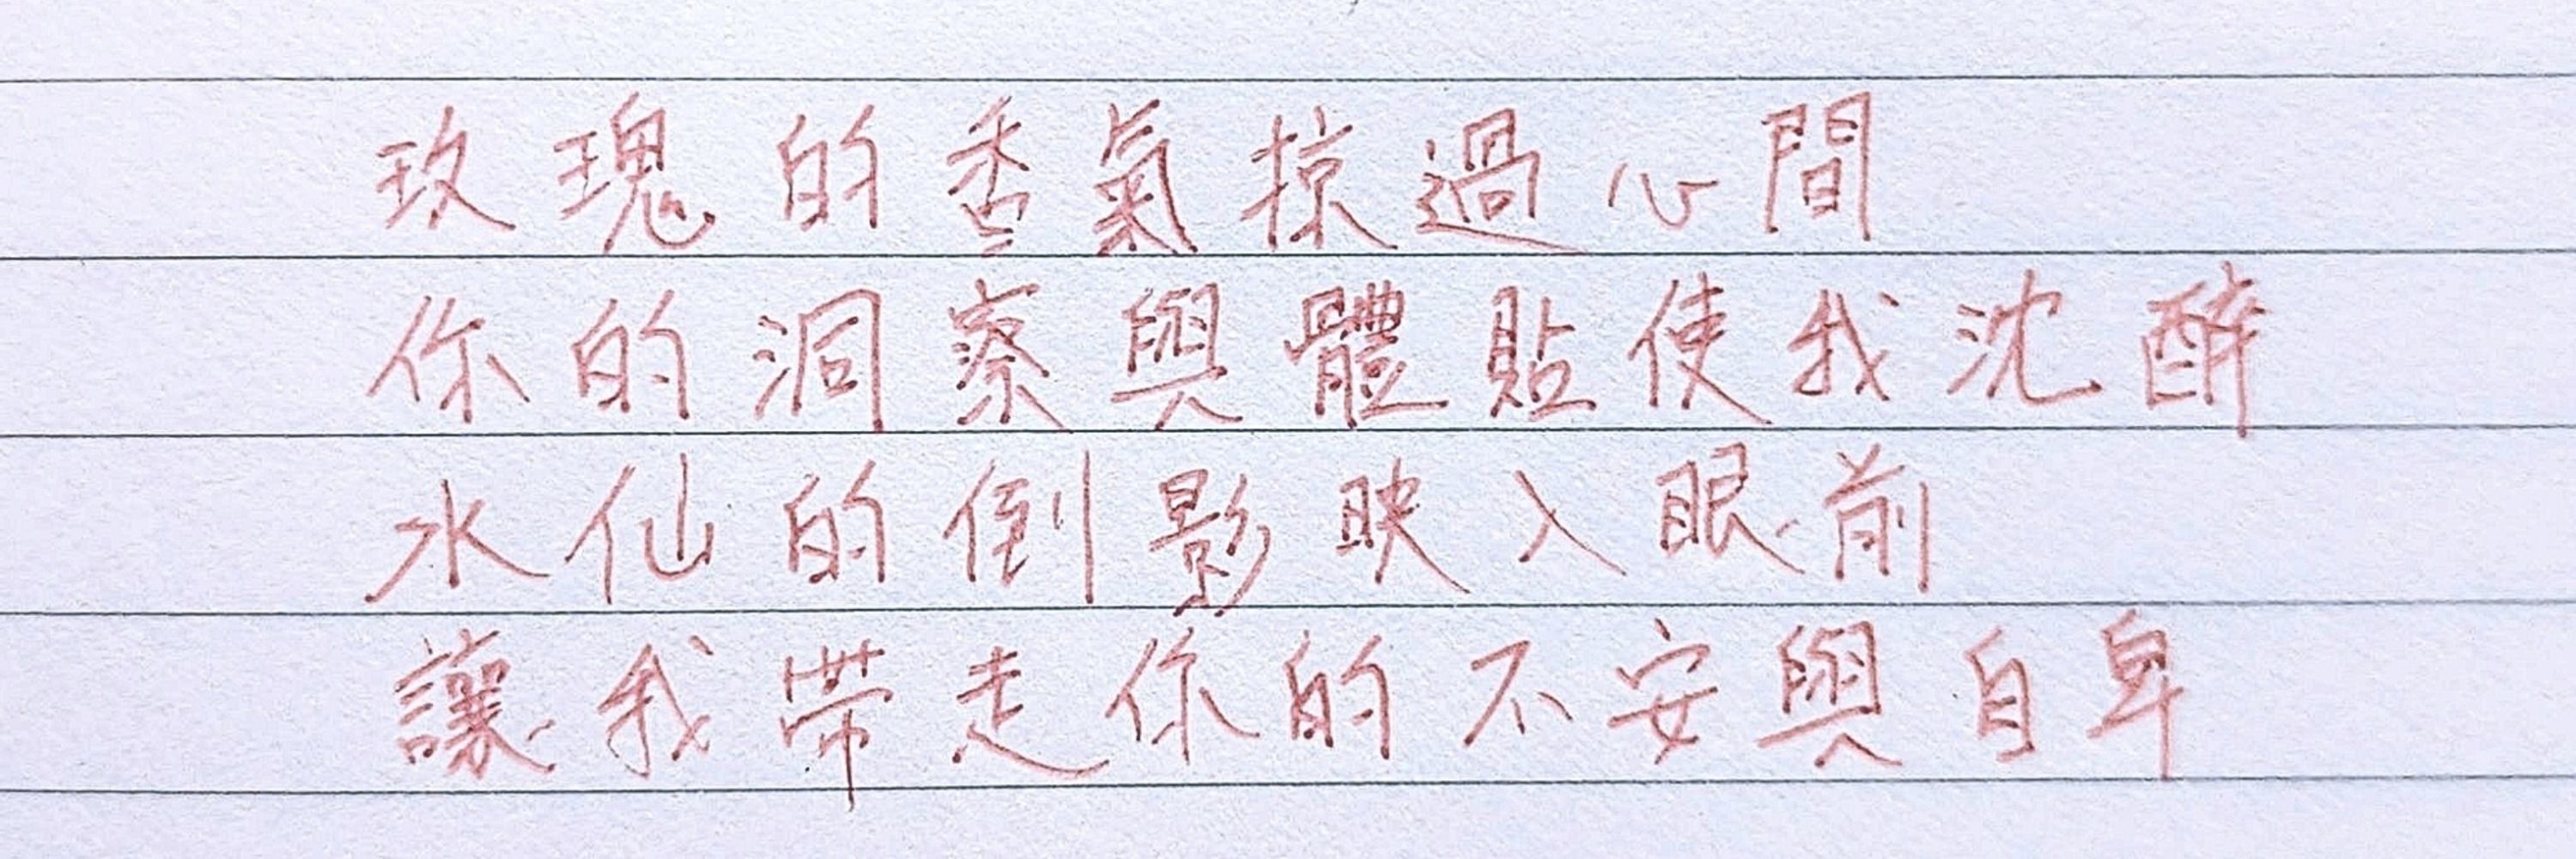 玫瑰的香氣掠過心間
你的洞察與體貼使我沈醉
水仙的倒影映入眼前
讓我帶走你的不安與自卑